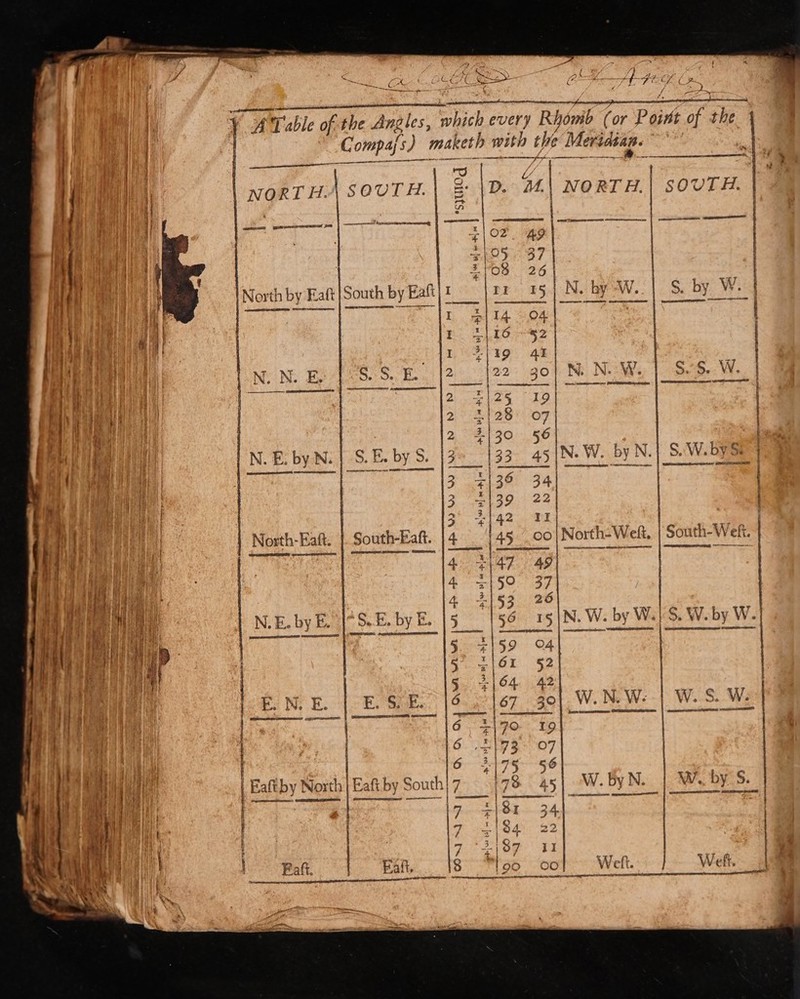 A Table of the Angles, which every Rhomb (or Point of the
Compaſs) maketh with the Meridian.
NORTH. SOUTH. Points. D. M. NORTH. SOUTH.
¼ 02. 49
½ 05 37
¾ 08 26
North by Eaſt South by Eaſt 1 11 15 N. by W. S. by W.
1 ¼ 14 04
1 ½ 16 52
1 ¾ 19 41
N. N. E. S. S. E. 2 22 30 N. N. W. S. S. W.
2 ¼ 25 19
2 ½ 28 07
2 ¾ 30 56
N. E. by N. S. E. by S. 3 33 45 N. W. by N. S. W. by S.
3 ¼ 36 34
3 ½ 39 22
3 ¾ 42 11
North-Eaſt. South-Eaſt. 4 45 00 North-Weſt. South-Weſt.
4 ¼ 47 49
4 ½ 50 37
4 ¾ 53 26
N. E. by E. S. E. by E. 5 56 15 N. W. by W. S. W. by W.
5 ¼ 59 04
5 ½ 61 52
5 ¾ 64 42
E. N. E. E. S. E. 6 67 30 W. N. W. W. S. W.
6 ¼ 70 19
6 ½ 73 07
6 ¾ 75 56
Eaſt by North Eaſt by South 7 78 45 W. by N. W. by S.
7 ¼ 81 34
7 ½ 84 22
7 ¾ 87 11
Eaſt. Eaſt. 8 90 00 Weſt. Weſt.